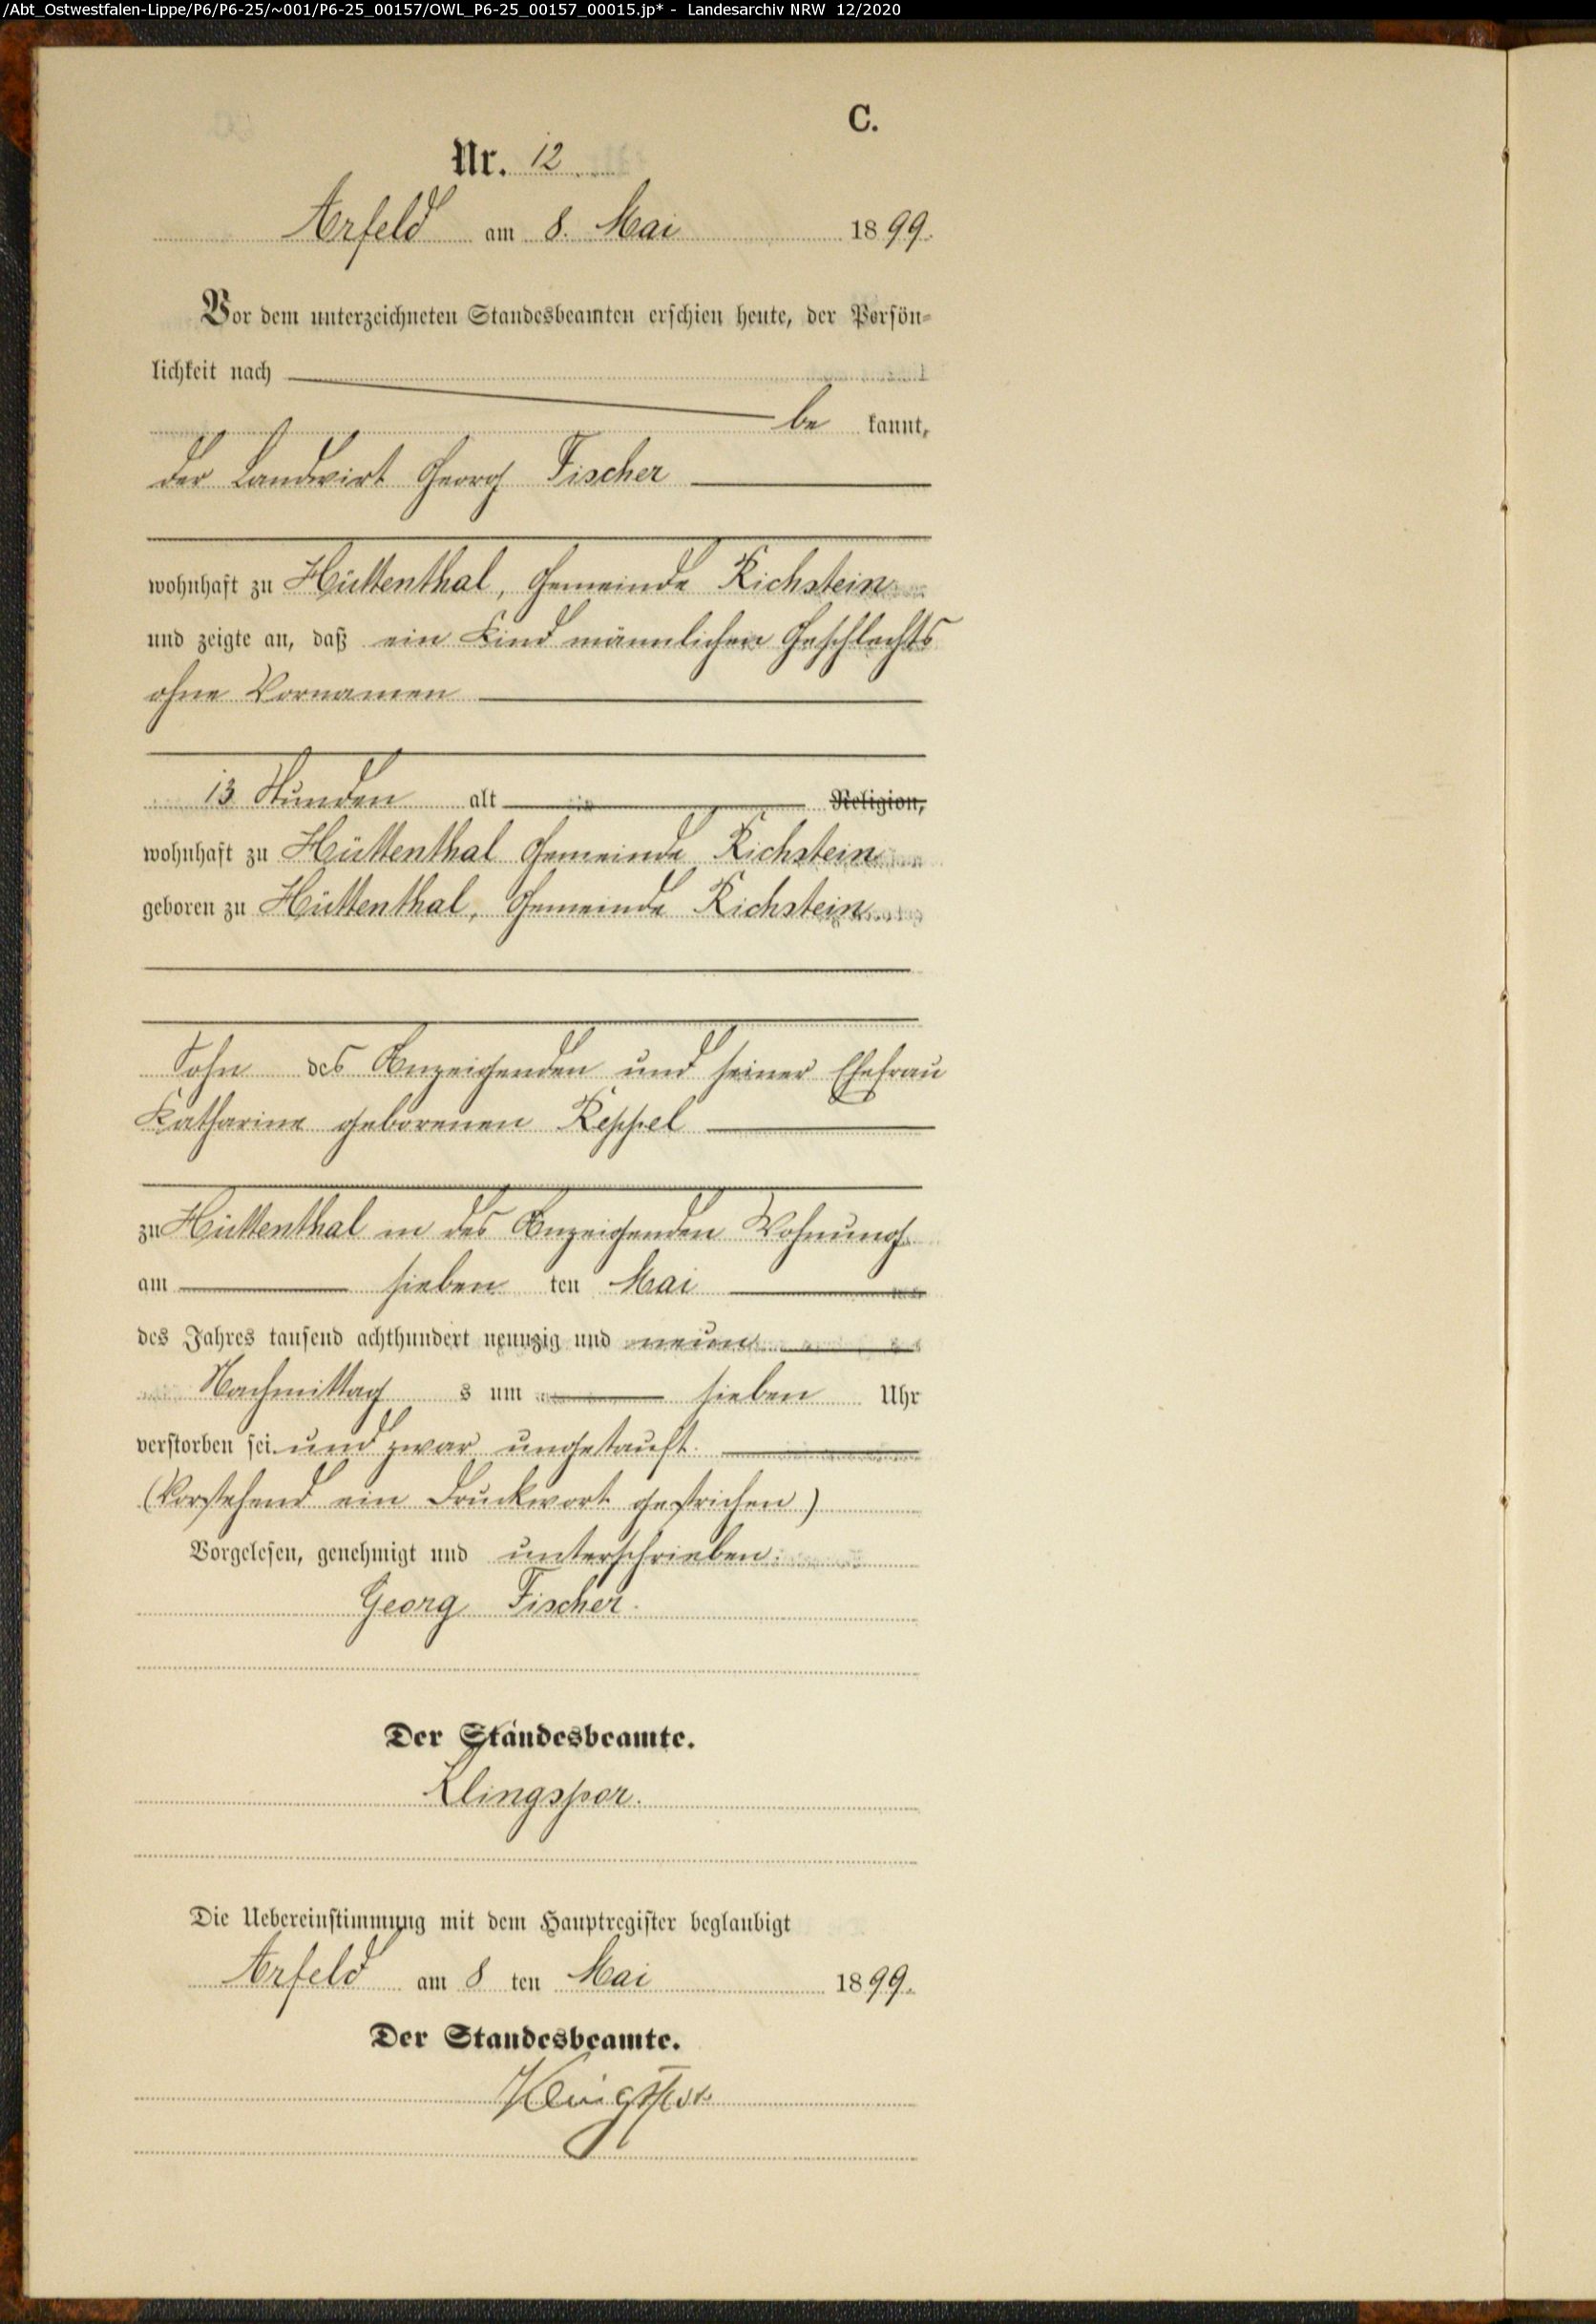 /Abt_Ostwestfalen-Lippe/P6/P6-25/~001/P6-25_00157/OWL_P6-25_00157_00015.jp* - Landesarchiv NRW 12/2020
C.
Nr. 12
Arfeld am 8. Mai 1899.
Vor dem unterzeichneten Standesbeamten erschien heute, der Persön-
lichkeit nach
be kannt,
der Landwirt Georg Fischer
wohnhaft zu Hüttenthal, Gemeinde Richstein
und zeigte an, daß ein Kind männlichen Geschlechts
ohne Vornamen
13 Stunden alt Religion,
wohnhaft zu Hüttenthal Gemeinde Richstein
geboren zu Hüttenthal, Gemeinde Richstein
Sohn des Anzeigenden und seiner Ehefrau
Katharine geborenen Keppel
zu Hüttenthal in des Anzeigenden Wohnung
am sieben ten Mai
des Jahres tausend achthundert neunzig und neun
Nachmittag s um sieben Uhr
verstorben sei und zwar ungetauft.
(Vorstehend ein Druckwort gestrichen)
Vorgelesen, genehmigt und unterschrieben:
Georg Fischer.
Der Standesbeamte.
Klingspor.
Die Uebereinstimmung mit dem Hauptregister beglaubigt
Arfeld am 8 ten Mai 1899.
Der Standesbeamte.
Klingspor